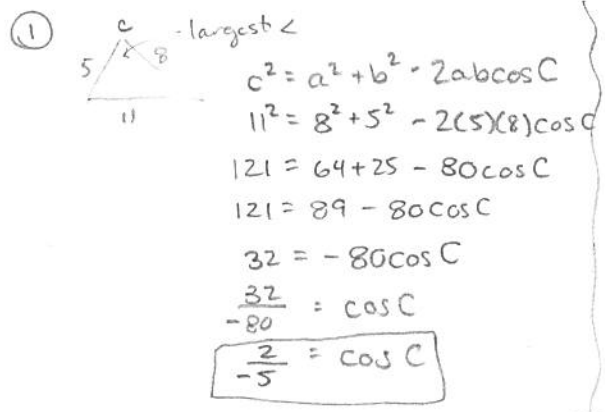 ① C - largest <
5 8
11
c² = a² + b² - 2abcosC
11² = 8² + 5² - 2(5)(8)cosC
121 = 64 + 25 - 80cosC
121 = 89 - 80cosC
32 = -80cosC
32/-80 = cosC
2/-5 = cosC